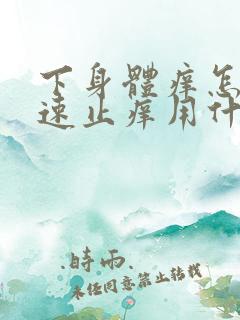 下身體痒怎
速止痒用什
.時雨.
未经同意禁止转载